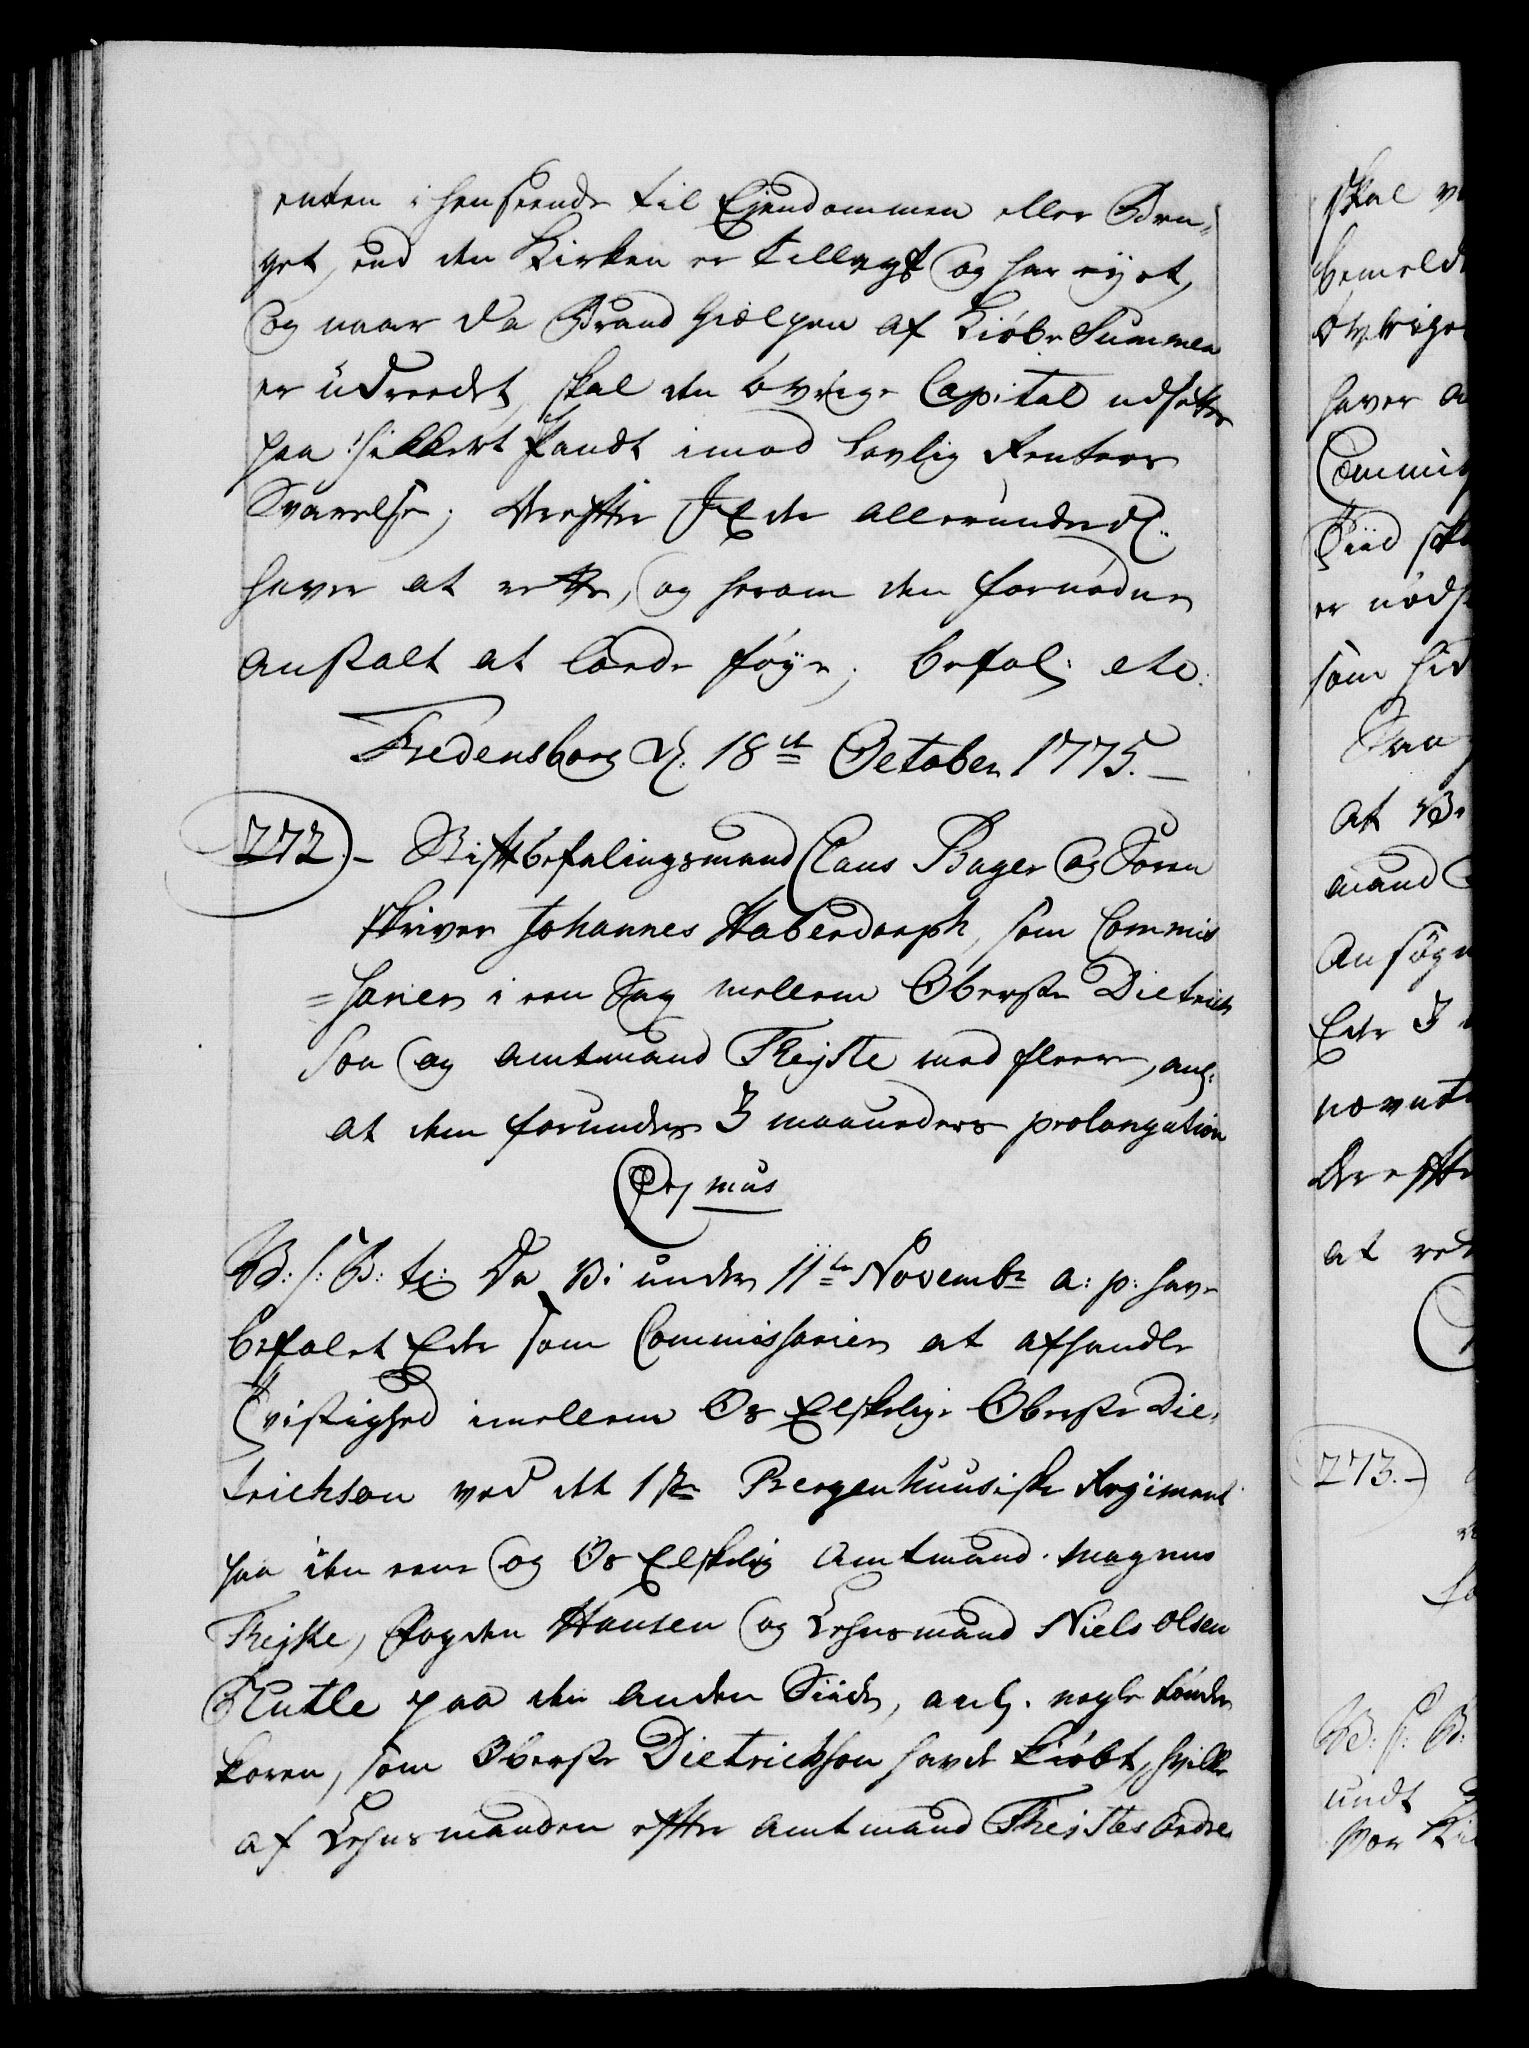 enten i henseende til Ejendommen eller Bru-
get, end den Kirken er tillagt og har eyet,
og naar da Brand Hielpen af Kiøbe Summen
er udreedet, skal den øvrige Capital udsættes
paa sikkert Pandt imod lovlig Renters
Svarelse; Derefter I Eder allerunderd:
haver at rette, og herom den fornødne
anstalt at lade føye; befal: etc:
Fredensborg d: 18de October 1775.
272.- Stiftbefalingsmand Claus Bager og Soren-
skriver Johannes Haberdorph, som Commis-
=sarier i een Sag mellem Oberste Dietrich-
son og Amtmand Theiste med fleere, ang:
at dem forundes 3 maaneders prolongation
C 7mus
V: S: B: til: Da Vi under 11te Novembr a: p: have
befalet Eder som Commissarier at afhandle
Tvistighed imellem Os Elskelige Oberste Die-
trichson ved det 1ste Bergenhuusiske Regiment
paa den eene og Os Elskelig Amtmand Magnus
Theiste, Fogden Hansen og Lehnsmand Niels Olsen
Nutle paa den anden Siide, ang. nogle tønder
Koren, som Oberste Dietrichson havde kiøbt, hvilke
af Lehnsmanden efter Amtmand Theistes Ordre
skal
bemeldt
øvrige
haver
Tiid
er
som
at
mand
Ansøgn
Eder 3
nævnte
derefter
at
273.-
V: S: B:
undt